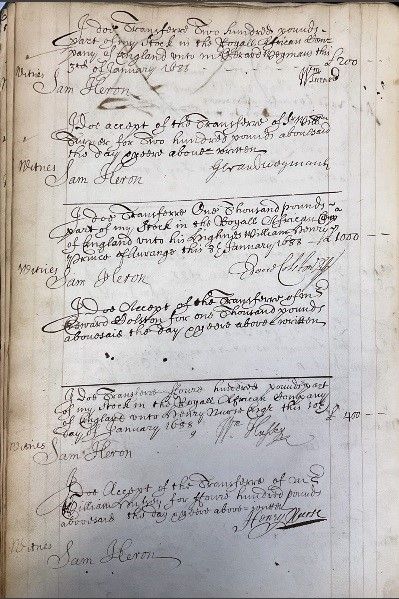 I doe Transferre Two hundred pounds
part of my Stock in the Royall African Com-
pany of England unto mr Gerard Weymans this
3rd of January 1688 £ 200
Witnes
Sam Heron
I doe accept of the Transferre of Sr Wm
Turner for Two hundred pounds abovesaid
the day & yeere above written
Witnes
Sam Heron Gerard weymans
I doe Transferre One Thousand pounds
part of my Stock in the Royall African Copy
of England unto his Highnes William Henry
Prince of Aurange this January 1688 £ 1000
Witnes
Sam Heron
I Doe Accept of the Transferre of mr
Edward Colston for one Thousand pounds
abovesaid the day & yeere above written
I Doe Transferre Foure hundred pounds part
of my Stock in the Royall African Company
of England unto Henry Nurse Esqr this 10th £ 400
day of January 1688
Witnes
Sam Heron
I Doe Accept of the Transferre of mr
William for foure hundred pounds
abovesaid the day & yeere above written
Henry Nurse
Witnes
Sam Heron